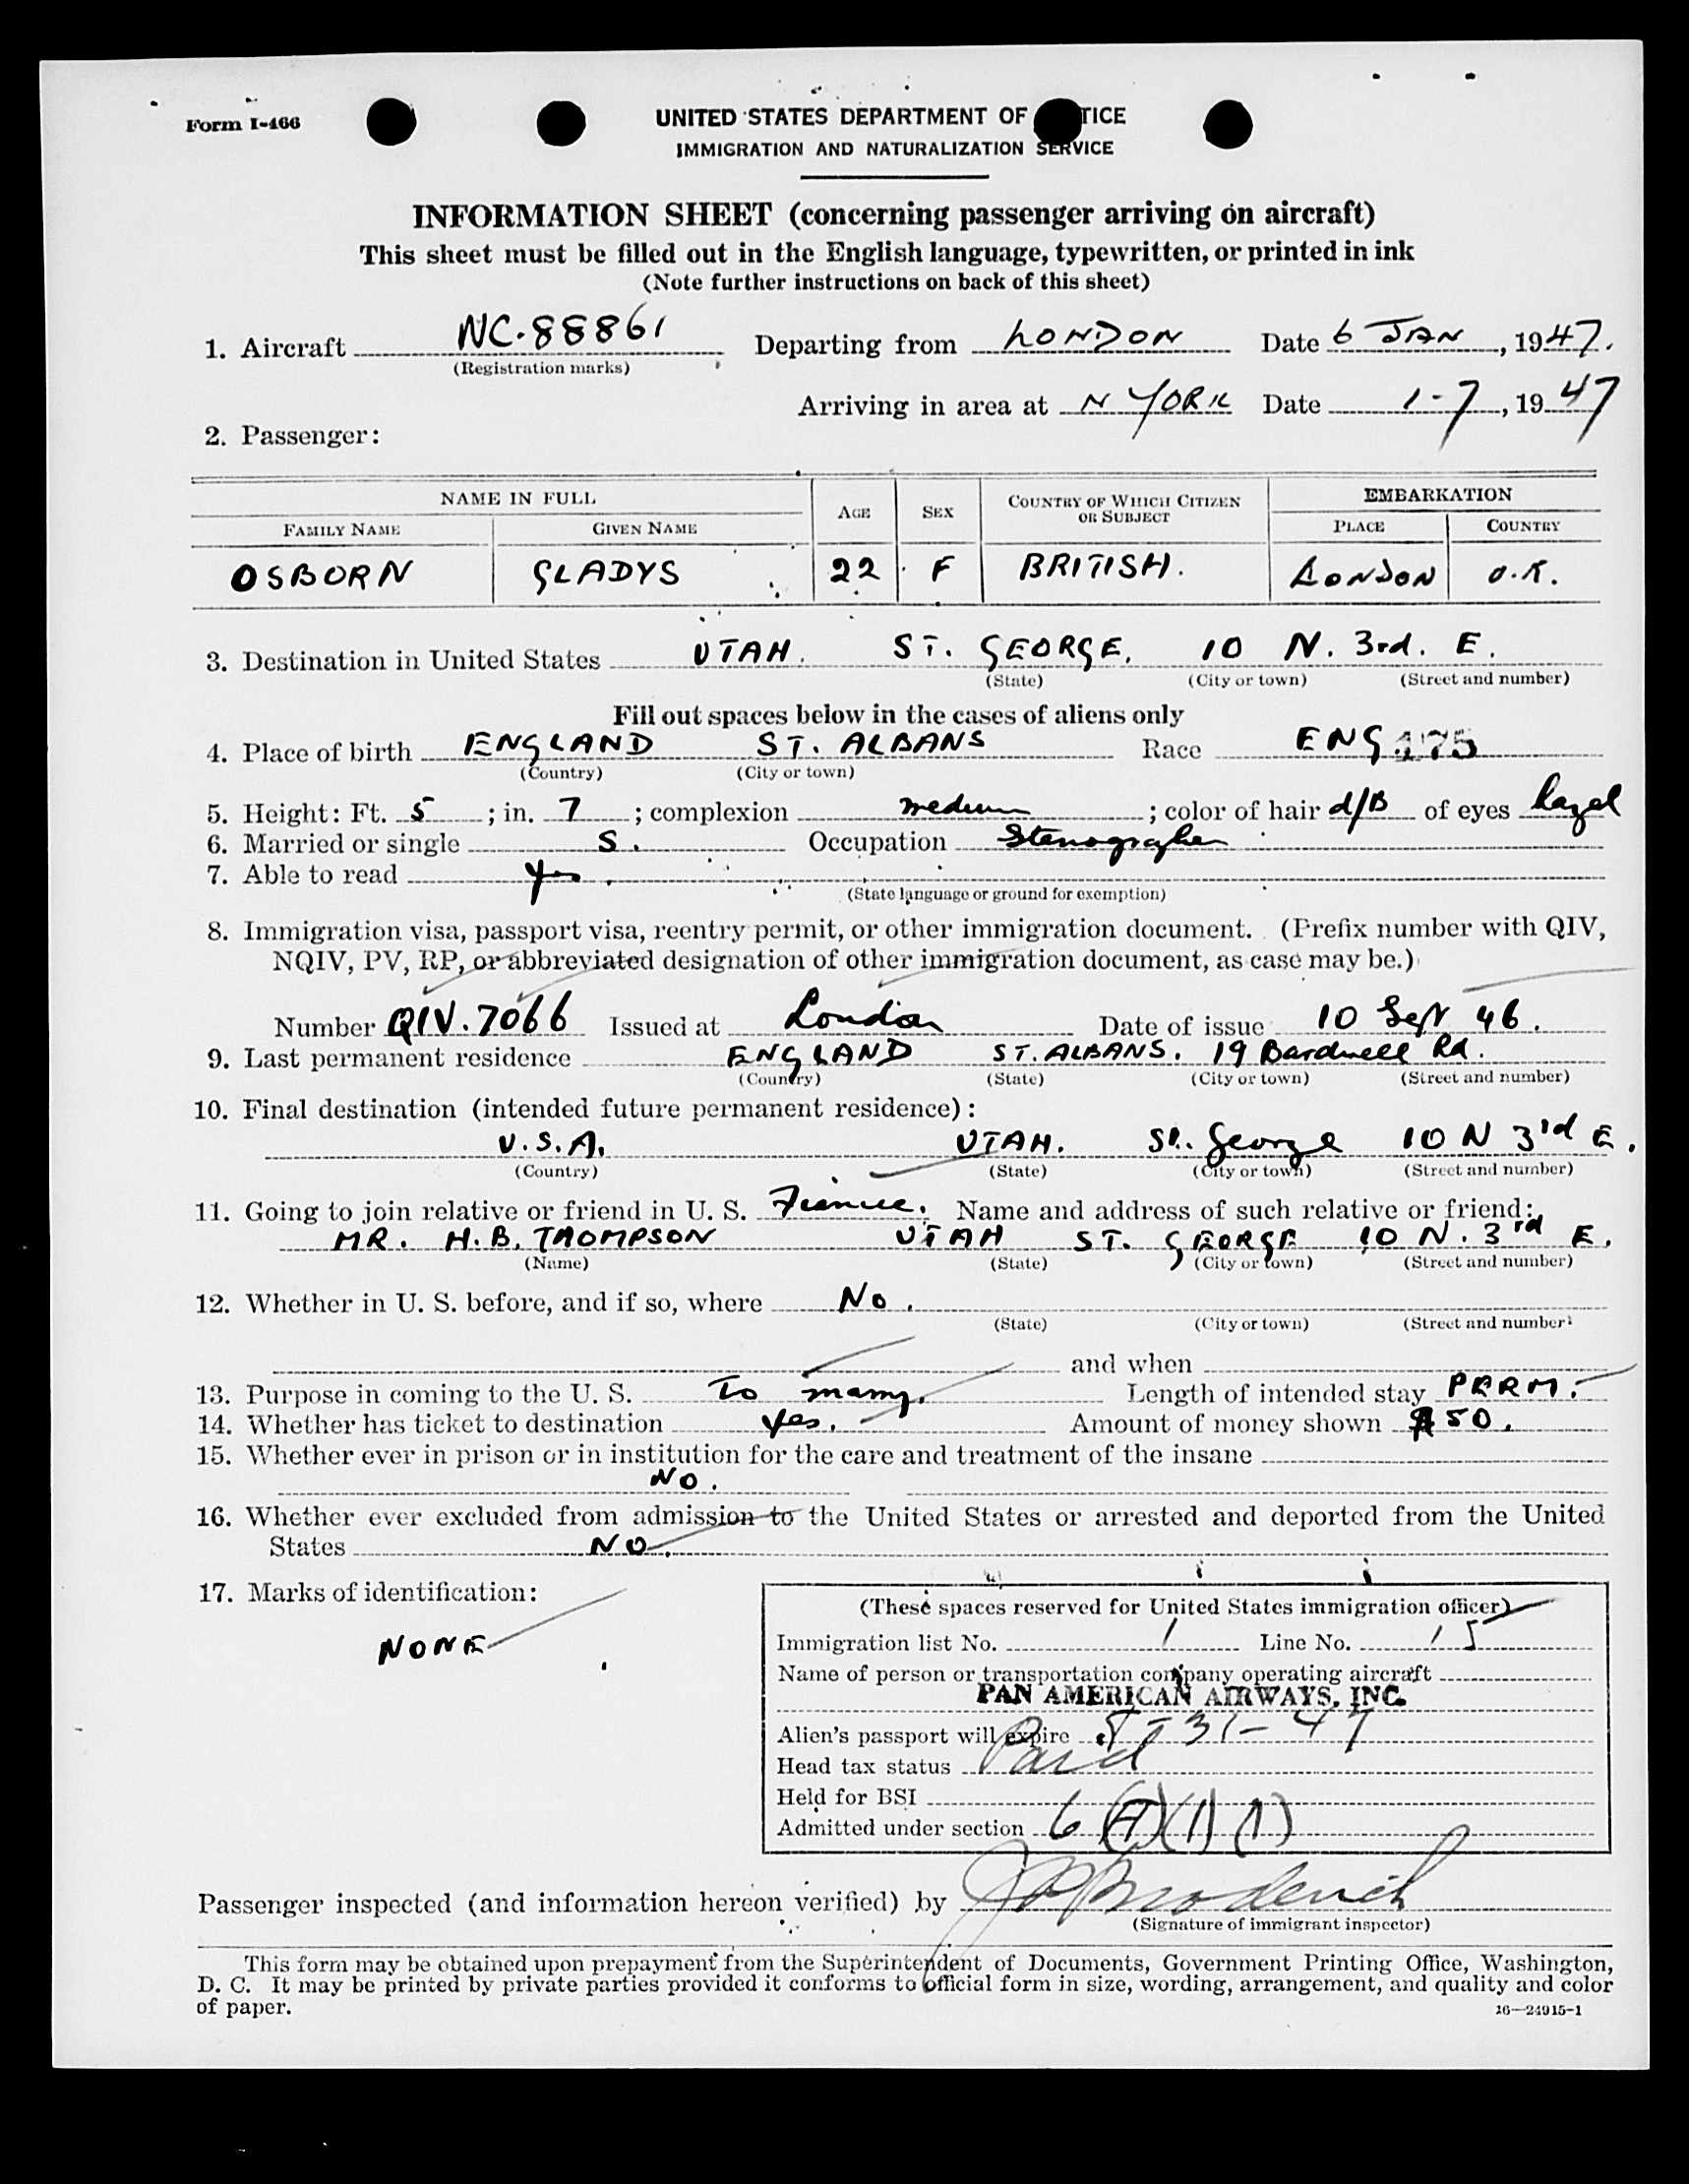 Form I-466
UNITED STATES DEPARTMENT OF TICE
IMMIGRATION AND NATURALIZATION SERVICE
INFORMATION SHEET (concerning passenger arriving on aircraft)
This sheet must be filled out in the English language, typewritten, or printed in ink
(Note further instructions on back of this sheet)
1. Aircraft NC-88861 Departing from LONDON Date 6 JAN, 1947.
(Registration marks)
Arriving in area at N YORK Date 1-7, 1947
2. Passenger:
NAME IN FULL AGE SEX COUNTRY OF WHICH CITIZEN OR SUBJECT EMBARKATION
FAMILY NAME GIVEN NAME PLACE COUNTRY
OSBORN GLADYS 22 F BRITISH. LONDON U.K.
3. Destination in United States UTAH. ST. GEORGE. 10 N. 3rd. E.
(State) (City or town) (Street and number)
Fill out spaces below in the cases of aliens only
4. Place of birth ENGLAND ST. ALBANS Race ENG 175
(Country) (City or town)
5. Height: Ft. 5; in. 7; complexion medium; color of hair d/B of eyes hazel
6. Married or single S. Occupation Stenographer
7. Able to read Yes.
(State language or ground for exemption)
8. Immigration visa, passport visa, reentry permit, or other immigration document. (Prefix number with QIV,
NQIV, PV, RP, or abbreviated designation of other immigration document, as case may be.)
Number QIV.7066 Issued at London Date of issue 10 Sept 46.
9. Last permanent residence ENGLAND ST. ALBANS. 19 Bardwell Rd.
(Country) (State) (City or town) (Street and number)
10. Final destination (intended future permanent residence):
U.S.A. UTAH. St. George 10 N 3rd E.
(Country) (State) (City or town) (Street and number)
11. Going to join relative or friend in U. S. Fiance. Name and address of such relative or friend:
MR. H.B. THOMPSON UTAH ST. GEORGE 10 N. 3rd E.
(Name) (State) (City or town) (Street and number)
12. Whether in U. S. before, and if so, where No.
(State) (City or town) (Street and number)
and when
13. Purpose in coming to the U. S. To marry. Length of intended stay PERM.
14. Whether has ticket to destination Yes. Amount of money shown $50.
15. Whether ever in prison or in institution for the care and treatment of the insane
NO.
16. Whether ever excluded from admission to the United States or arrested and deported from the United
States NO.
17. Marks of identification:
NONE
(These spaces reserved for United States immigration officer)
Immigration list No. 1 Line No. 15
Name of person or transportation company operating aircraft
PAN AMERICAN AIRWAYS, INC.
Alien's passport will expire 8-31-47
Head tax status Paid
Held for BSI
Admitted under section 6 (A)(1)(1)
Passenger inspected (and information hereon verified) by Broderich
(Signature of immigrant inspector)
This form may be obtained upon prepayment from the Superintendent of Documents, Government Printing Office, Washington,
D. C. It may be printed by private parties provided it conforms to official form in size, wording, arrangement, and quality and color
of paper.
16—24915-1